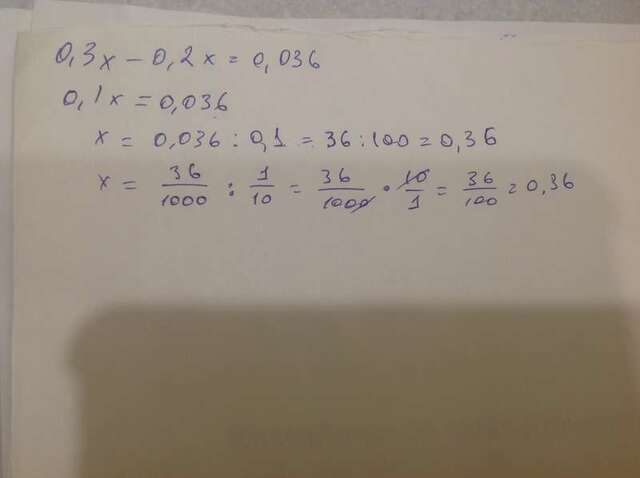 0,3x - 0,2x = 0,036
0,1x = 0,036
x = 0,036 : 0,1 = 36 : 100 = 0,36
x = 36/1000 : 1/10 = 36/1000 · 10/1 = 36/100 = 0,36